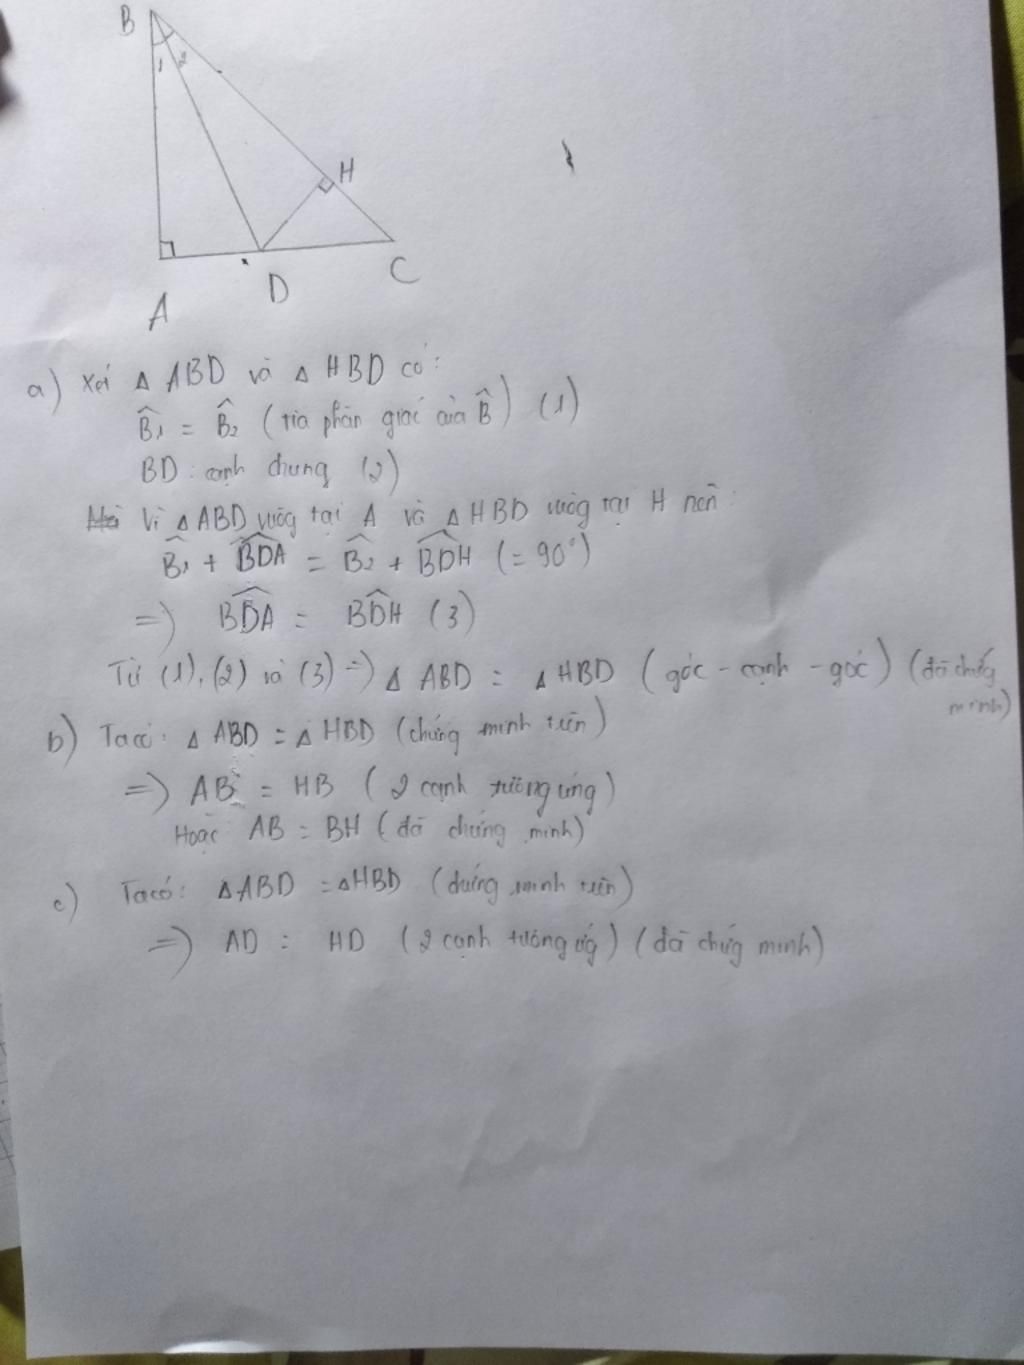 B
1 2
H
A D C
a) Xét Δ ABD và Δ HBD có:
B̂₁ = B̂₂ (tia phân giác của B̂) (1)
BD: cạnh chung (2)
Vì Δ ABD vuôg tại A và Δ HBD vuôg tại H nên:
B̂₁ + B̂DA = B̂₂ + B̂DH (= 90°)
=> BD̂A = BD̂H (3)
Từ (1), (2) và (3) => Δ ABD = Δ HBD (góc - cạnh - góc) (đã chứg minh)
b) Ta có: Δ ABD = Δ HBD (chứng minh trên)
=> AB = HB (2 cạnh tương ứng)
Hoặc AB = BH (đã chứng minh)
c) Ta có: Δ ABD = Δ HBD (chứng minh trên)
=> AD = HD (2 cạnh tương ứg) (đã chứg minh)